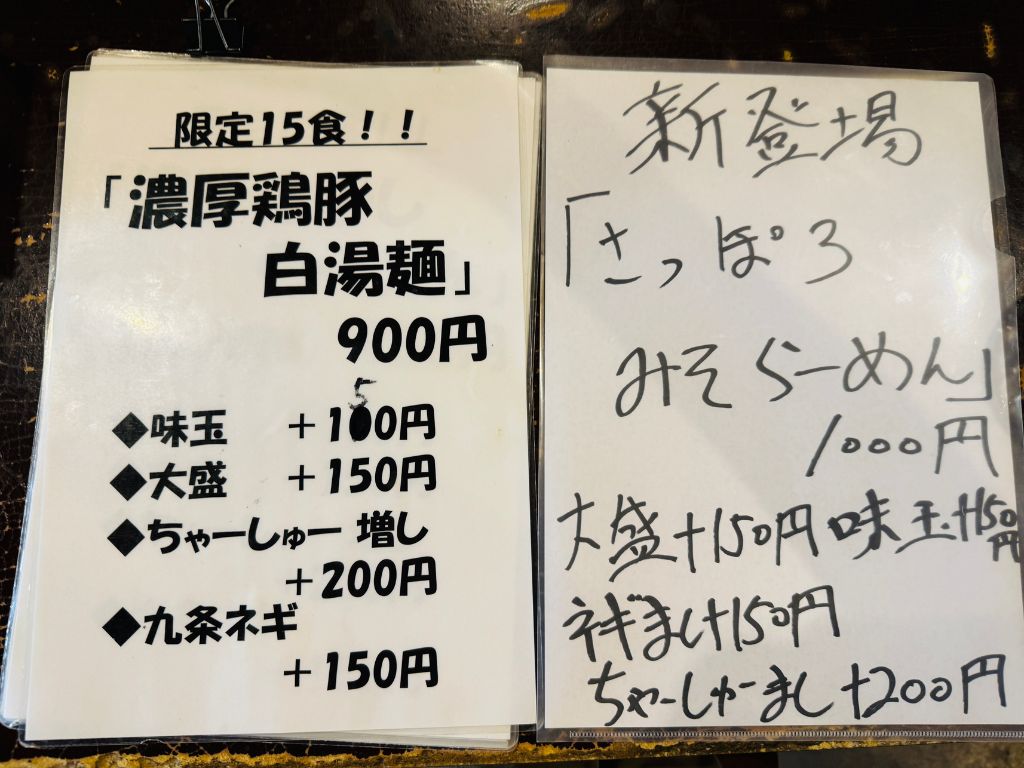 限定15食！！
「濃厚鶏豚
白湯麺」
900円
◆味玉 ＋150円
◆大盛 ＋150円
◆ちゃーしゅー 増し
＋200円
◆九条ネギ
＋150円
新登場
「さっぽろ
みそらーめん」
1000円
大盛+150円 味玉+150円
ネギまし+150円
ちゃーしゅーまし+200円